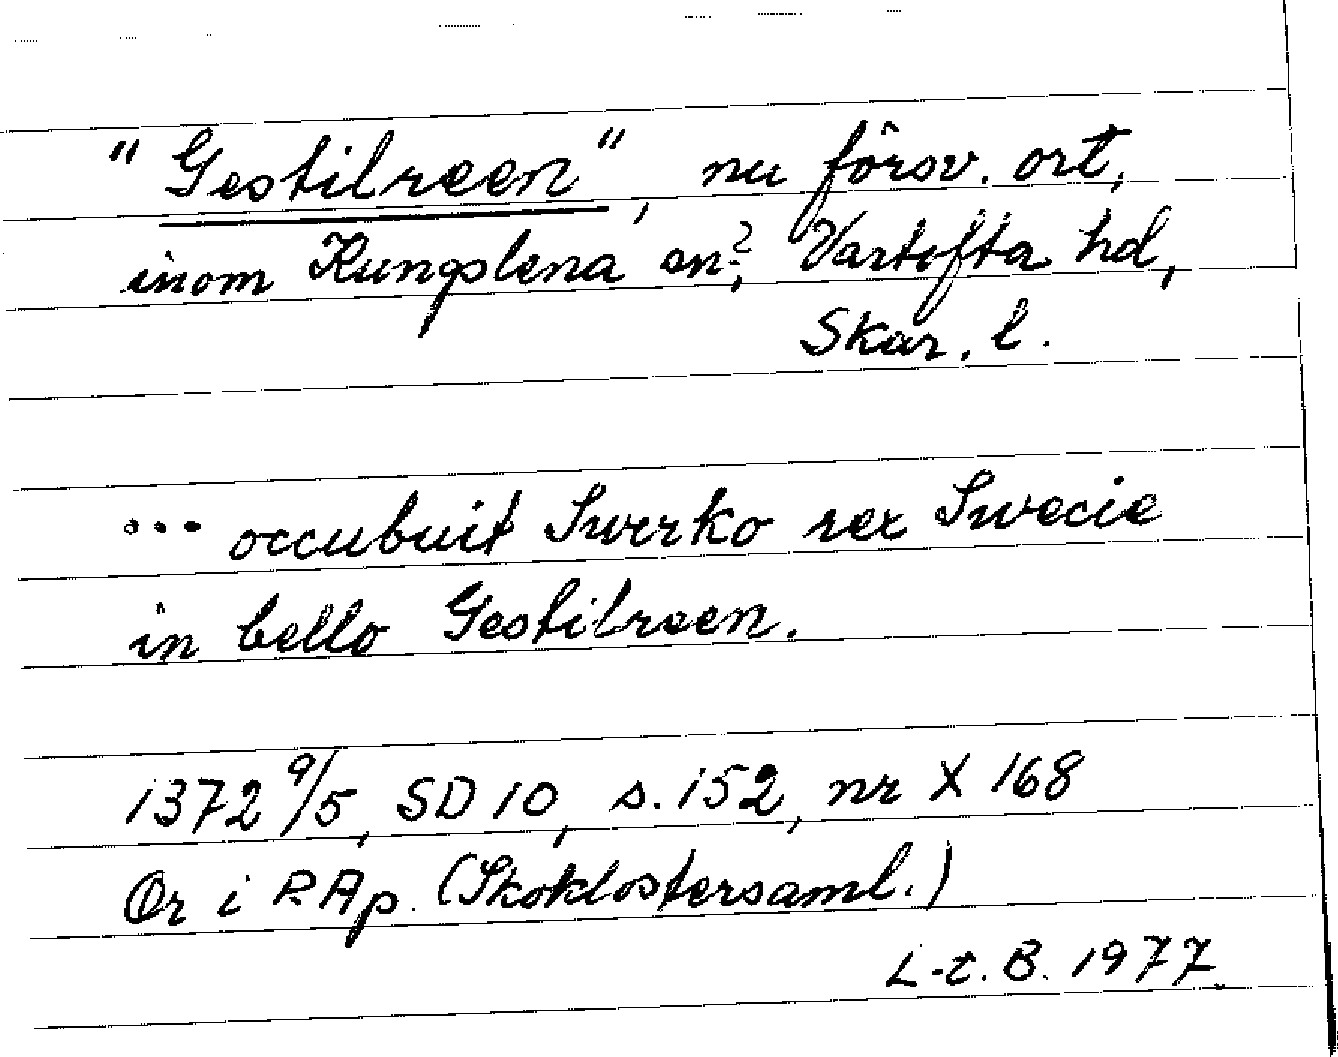 "Gestilreen", nu försv. ort,
inom Kungslena sn?, Vartofta hd,
Skar. l.
... occubuit Swerko rex Swecie
in bello Gestilreen.
1372 9/5, SD 10, s. 152, nr X 168
Or i RAp. (Skoklostersaml.)
L-t. B. 1977.